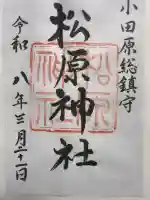 小田原総鎮守
松原神社
令和八年三月二十一日